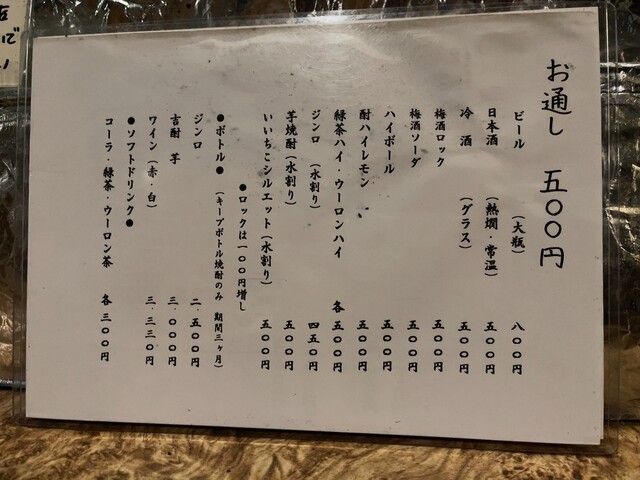 お通し 五〇〇円
ビール (大瓶) 八〇〇円
日本酒 (熱燗・常温) 五〇〇円
冷酒 (グラス) 五〇〇円
梅酒ロック 五〇〇円
梅酒ソーダ 五〇〇円
ハイボール 五〇〇円
酎ハイレモン 五〇〇円
緑茶ハイ・ウーロンハイ 各五〇〇円
ジンロ (水割り) 四五〇円
芋焼酎(水割り) 五〇〇円
いいちこシルエット(水割り) 五〇〇円
●ロックは一〇〇円増し
●ボトル● (キープボトル焼酎のみ 期間三ヶ月)
ジンロ 二.五〇〇円
吉酎 芋 三.〇〇〇円
ワイン (赤・白) 三.三三〇円
●ソフトドリンク●
コーラ・緑茶・ウーロン茶 各三〇〇円